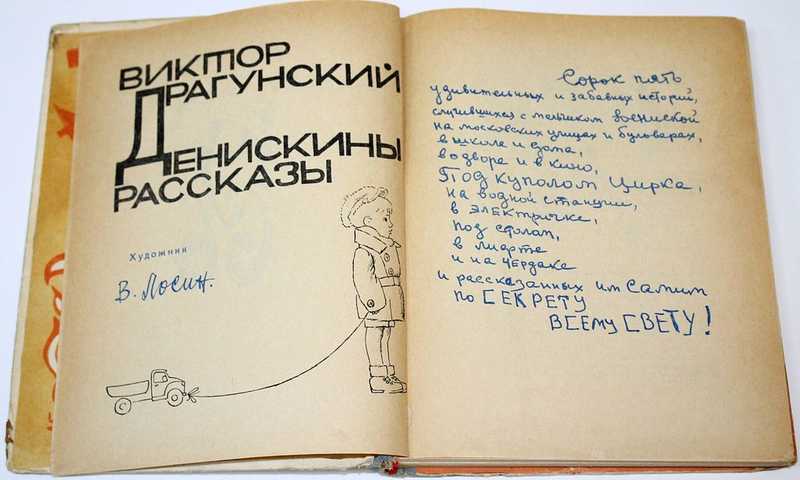 ВИКТОР
ДРАГУНСКИЙ
ДЕНИСКИНЫ
РАССКАЗЫ
Художник
В. Лосин.
Сорок пять
удивительных и забавных историй,
случившихся с
на московских улицах и бульварах,
в школе и дома,
во дворе и в кино,
ПОД КУПОЛОМ ЦИРКА,
на водной станции,
в ЭЛЕКТРИЧКЕ,
под столом,
в лифте
и на ЧЕРДАКЕ
и рассказанных им Самим
по СЕКРЕТУ
ВСЕМУ СВЕТУ!